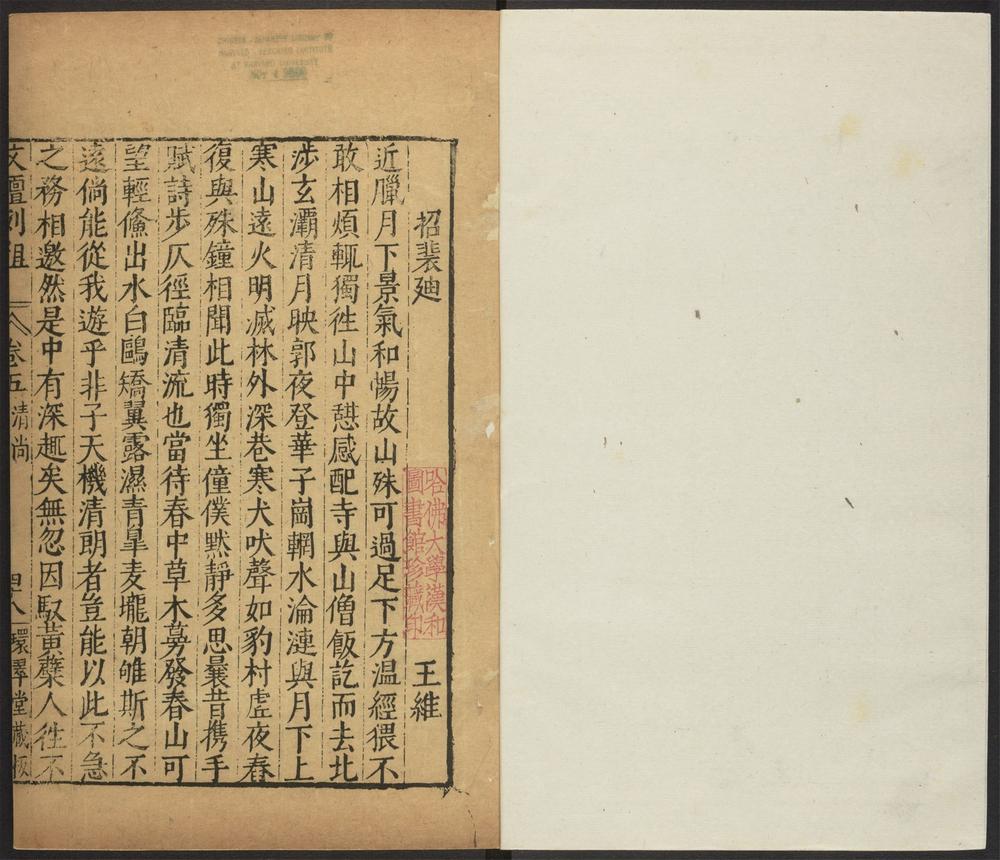 招裴廸 王維
近臘月下景氣和暢故山殊可過足下方温經猥不
敢相煩輒獨徃山中憇感配寺與山僧飯訖而去北
涉玄灞清月映郭夜登華子崗輞水淪漣與月下上
寒山遠火明滅林外深巷寒犬吠聲如豹村虗夜舂
復與殊鐘相聞此時獨坐僮僕黙靜多思曩昔携手
賦詩歩仄徑臨清流也當待春中草木蔓發春山可
望輕鯈出水白鷗矯翼露濕青臯麦壠朝雊斯之不
遠倘能從我遊乎非子天機清朗者豈能以此不急
之務相邀然是中有深趣矣無忽因馭黄蘗人徃不
文壇列俎 卷五清尚 四八 環翠堂藏板
哈佛大學漢和
圖書館珍藏印
CHINESE - JAPANESE LIBRARY OF
HARVARD - YENCHING INSTITUTE
AT HARVARD UNIVERSITY